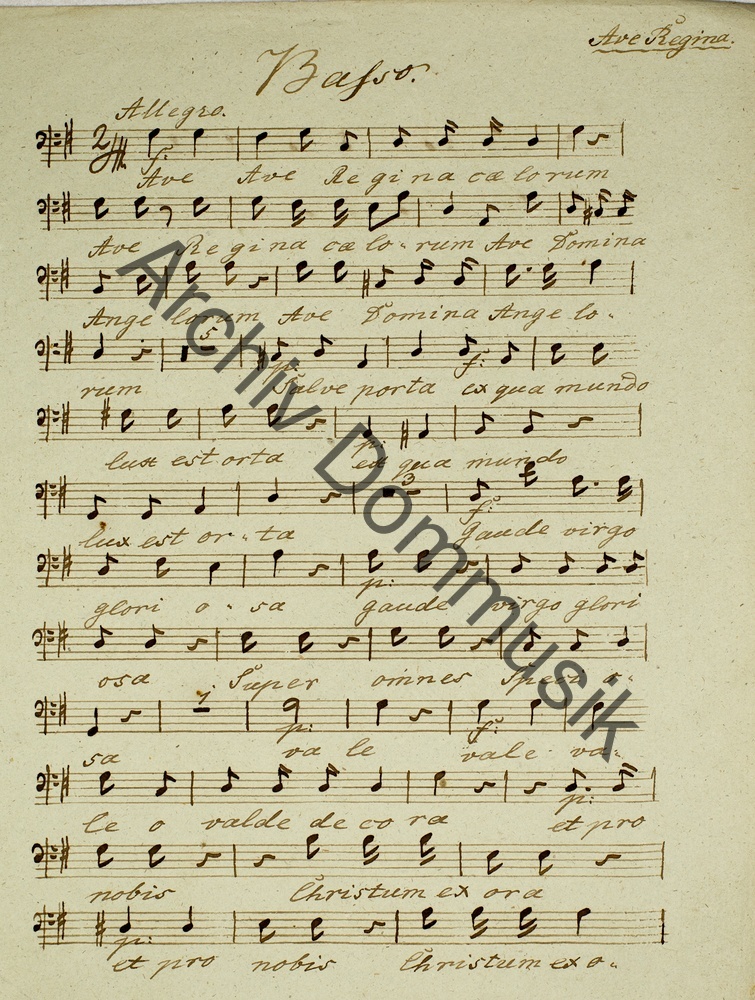 Ave Regina.
Basso.
Allegro.
f:
Ave Ave Regina cælorum
Ave Regina cælo-rum Ave Domina
Ange lorum Ave Domina Ange lo-
5
p: f:
rum Salve porta ex qua mundo
p:
lux est orta ex qua mundo
3
f:
lux est or-ta gaude virgo
p:
glori o-sa gaude virgo glori
osa Super omnes Speci o-
1
p: f:
sa va le vale va-
p:
le o valde decora et pro
nobis Christum ex ora
p:
et pro nobis Christum ex o-
Archiv Dommusik